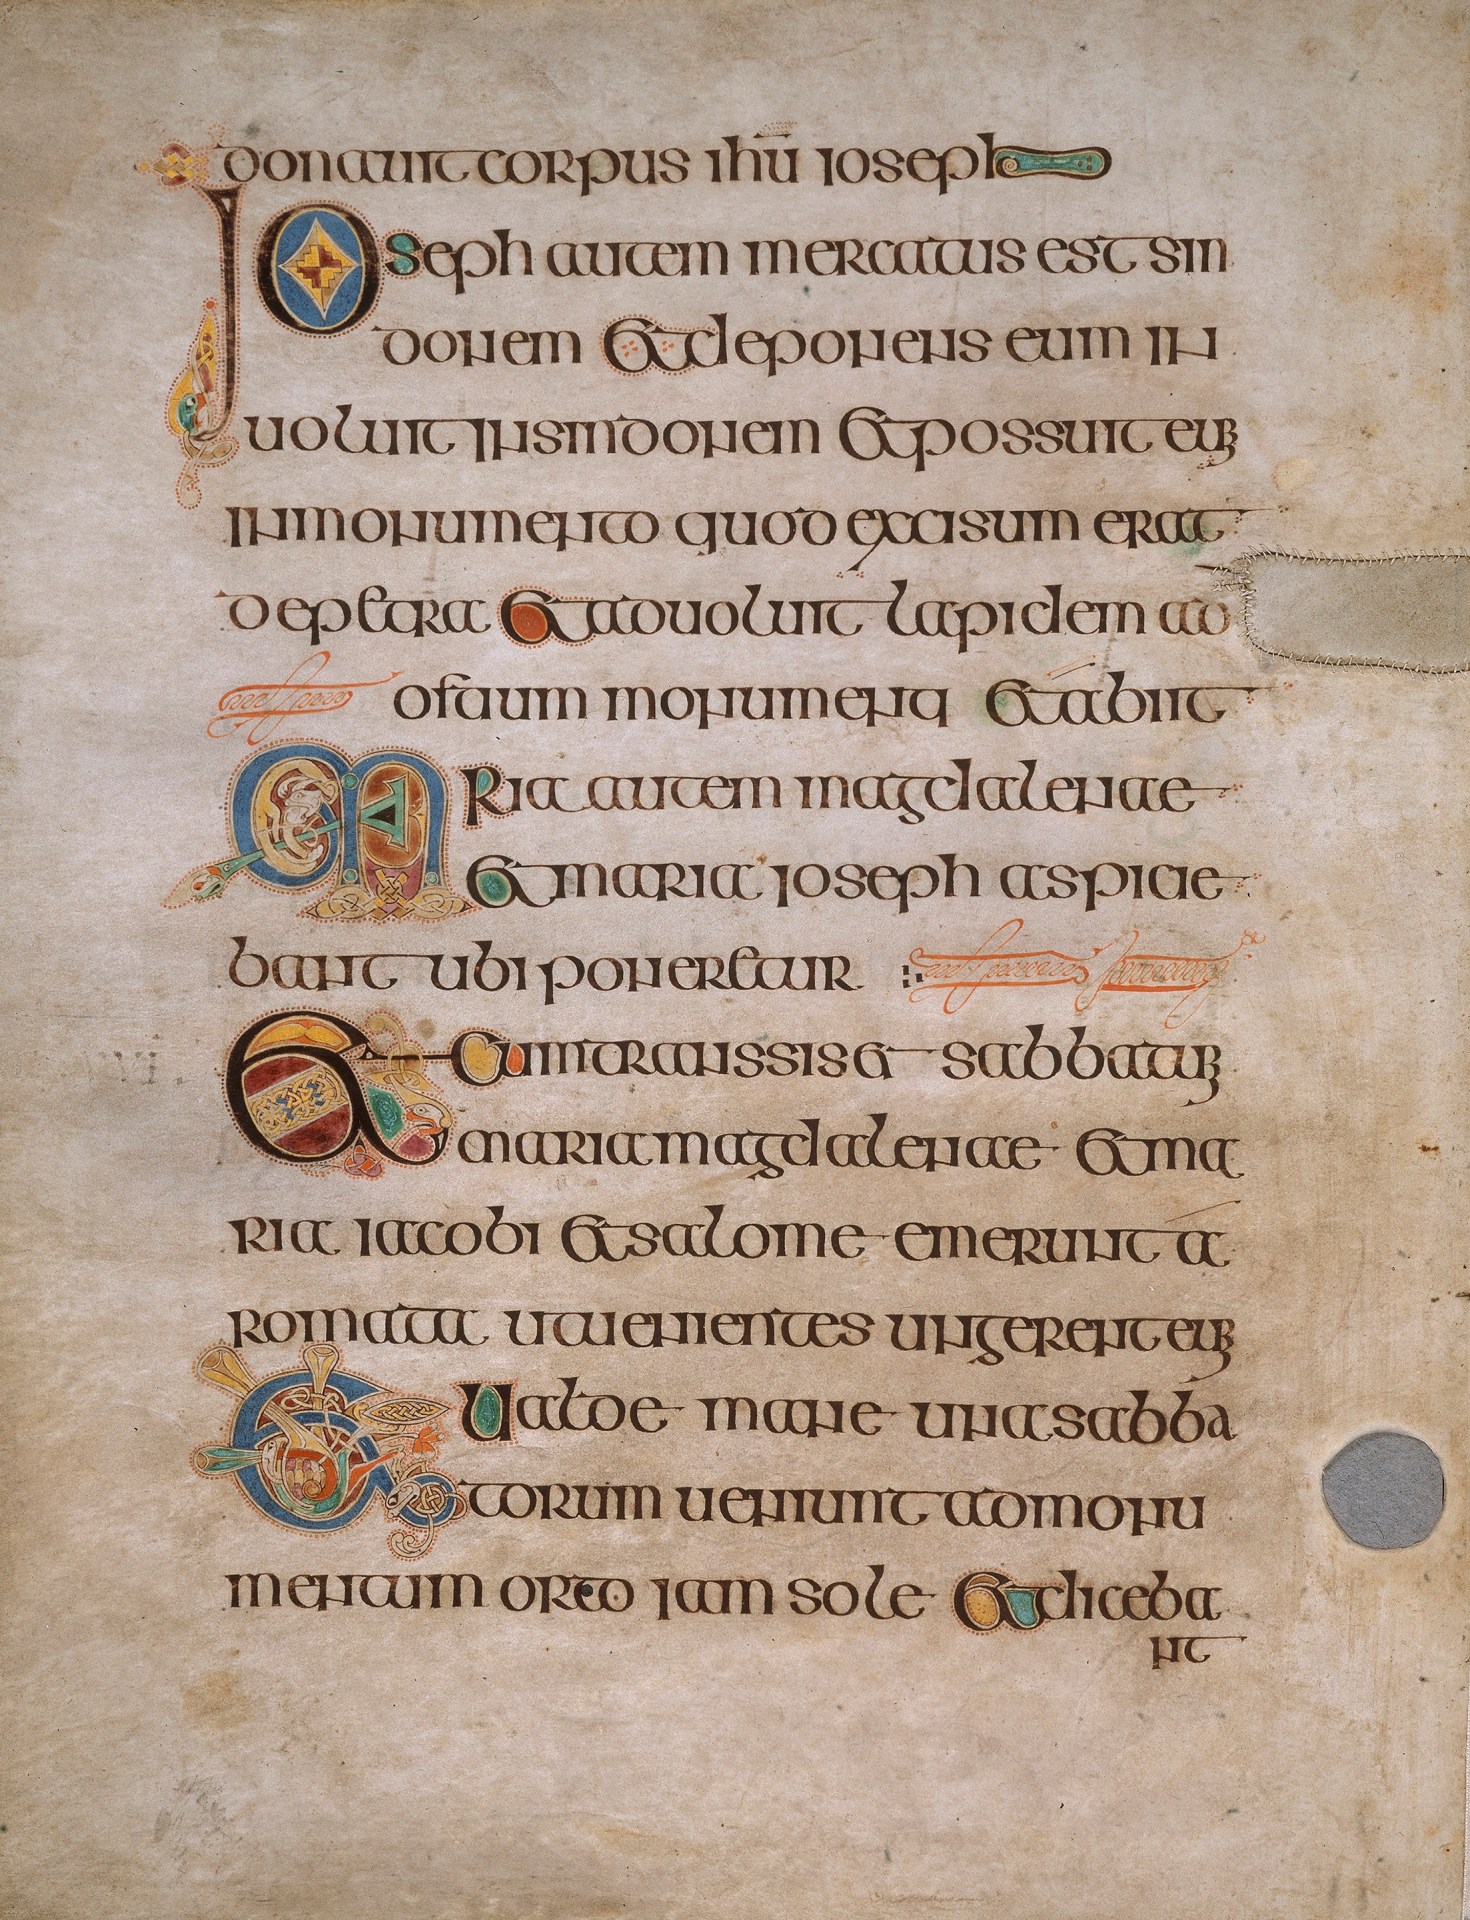 donauit corpus ihū ioseph
Ioseph autem mercatus est sin
donem et deponens eum in
uoluit in sindonem et possuit eum
in monumento quod excisum erat
de petra et aduoluit lapidem ad
ofcium monumenti et abiit
Maria autem magdalenae
et maria ioseph aspicie
bant ubi poneretur
Et cum transsisset sabbatum
maria magdalenae et ma
ria iacobi et salome emerunt a
romata ut uenientes ungerent eum
Et ualde mane una sabba
torum ueniunt ad monu
mentum orto iam sole et diceba
nt